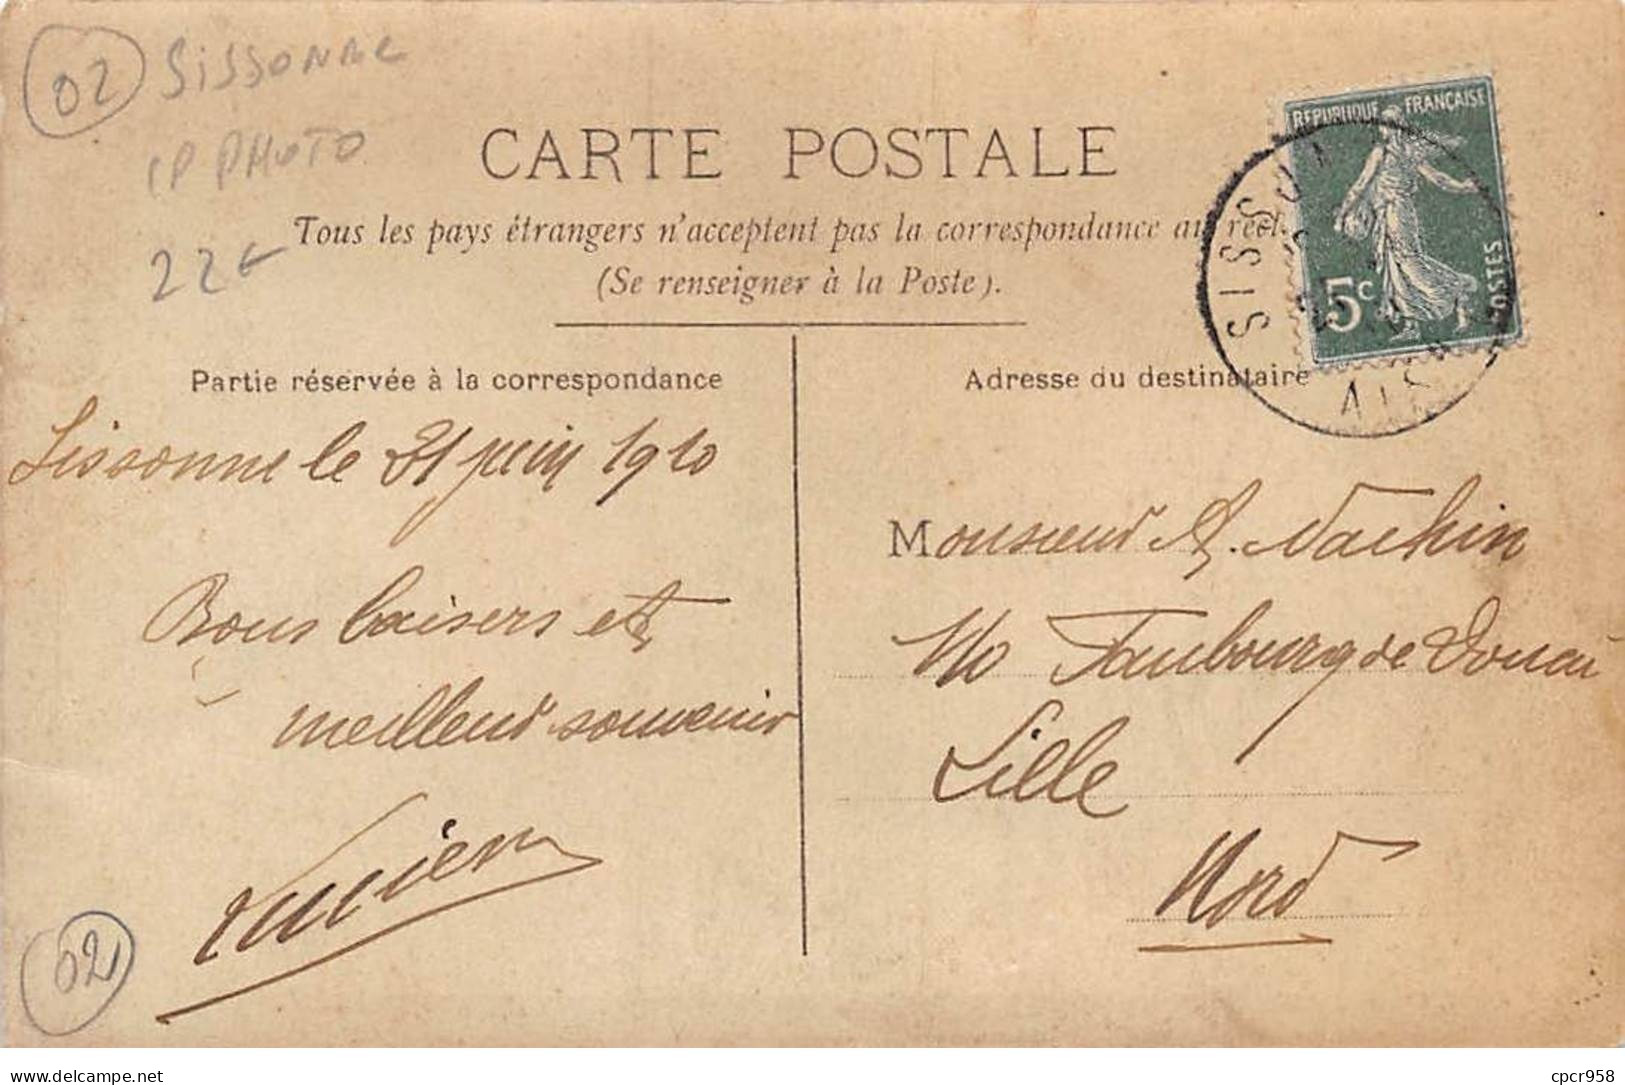 02 Sissonne
CP PHOTO
22€
CARTE POSTALE
Tous les pays étrangers n'acceptent pas la correspondance au recto
(Se renseigner à la Poste).
REPUBLIQUE FRANÇAISE
5c
POSTES
SISSON
Partie réservée à la correspondance
Adresse du destinataire
Sissonne le 21 juin 1910
Bons baisers et
meilleur souvenir
Lucien
Monsieur A. Nachin
110 Faubourg de Douai
Lille
Nord
02
delcampe.net
cpcr958